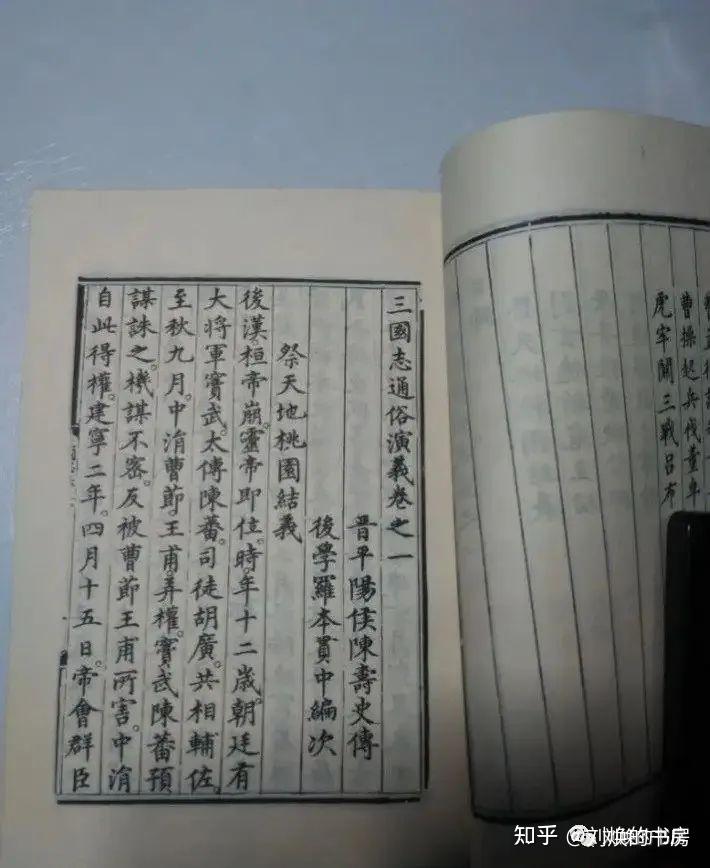 曹操起兵伐董卓
虎牢關三戰呂布
三國志通俗演義卷之一
晉平陽侯陳壽史傳
後學羅本貫中編次
祭天地桃園結義
後漢桓帝崩。靈帝即位。時年十二歲。朝廷有
大將軍竇武。太傅陳蕃。司徒胡廣。共相輔佐。
至秋九月。中涓曹節。王甫弄權。竇武陳蕃預
謀誅之。機謀不密。反被曹節王甫所害。中涓
自此得權。建寧二年。四月十五日。帝會群臣
知乎 的书房